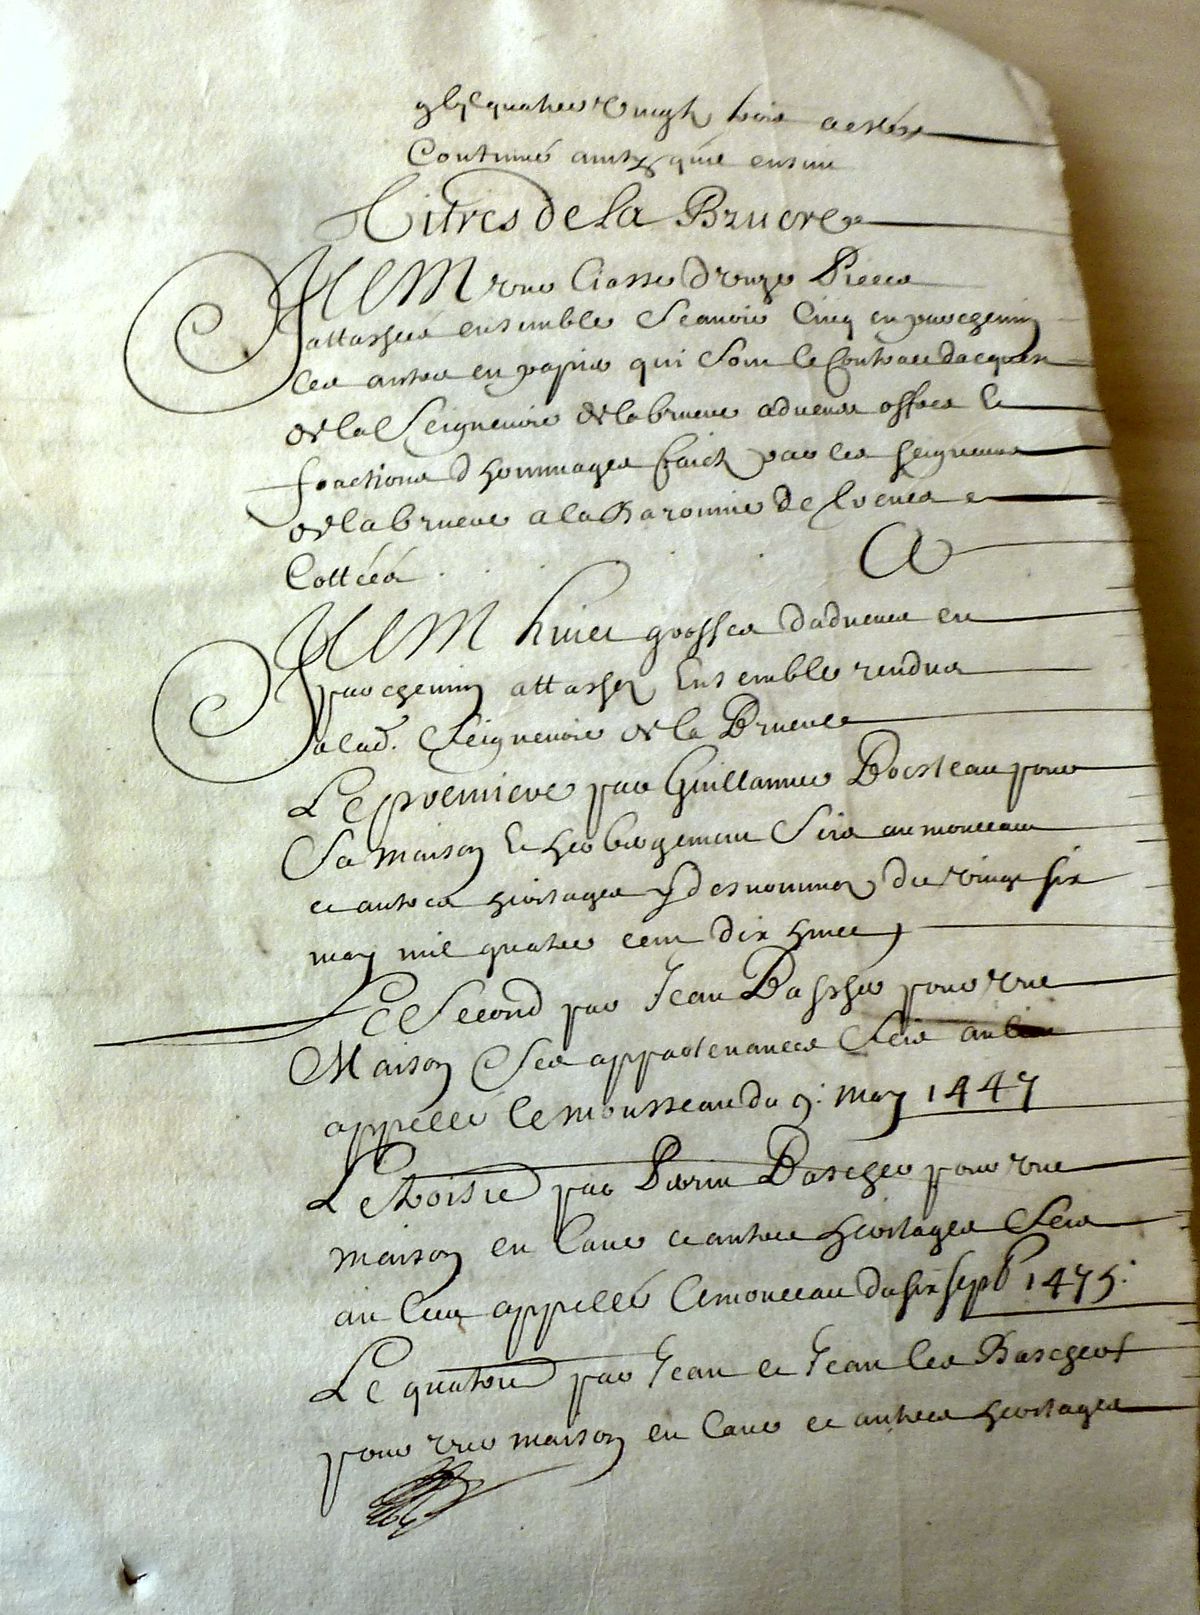 quatre vingt trois a esté
Continué ainsy que ensuit
Titres de la Bruere
ITEM une liasse d'unze Pieces
attaschées ensemble Scavoir Cinq en parchemin
les autres en papier qui Sont le Contract dacquest
de la Seigneurie de la bruere adveus offres et
foactions d'hommages faict par les seigneurs
de la bruere a la Baronnie de
Cottéés . . . . A
ITEM huict grosses d'adveus en
parchemin attasché Ensemble rendus
a lad. Seigneurie de la Bruere
Le premiere par Guillaume Boesteau pour
Sa maison et herbergement Sise au monceau
et autres heritages y desnommez du vingt six
may mil quatre cent dix huict
Le Second par Jean Bascher pour une
Maison Ses appartenances Sise au lieu
appellé le mousseau du 9. may 1447
Le troisie par Perrin Bascher pour une
maison en Cave et autres heritages Sise
au lieu appellé le monceau du six sepb 1475.
Le quatrie par Jean et Jean les Baschers
pour une maison en Cave et autres heritages